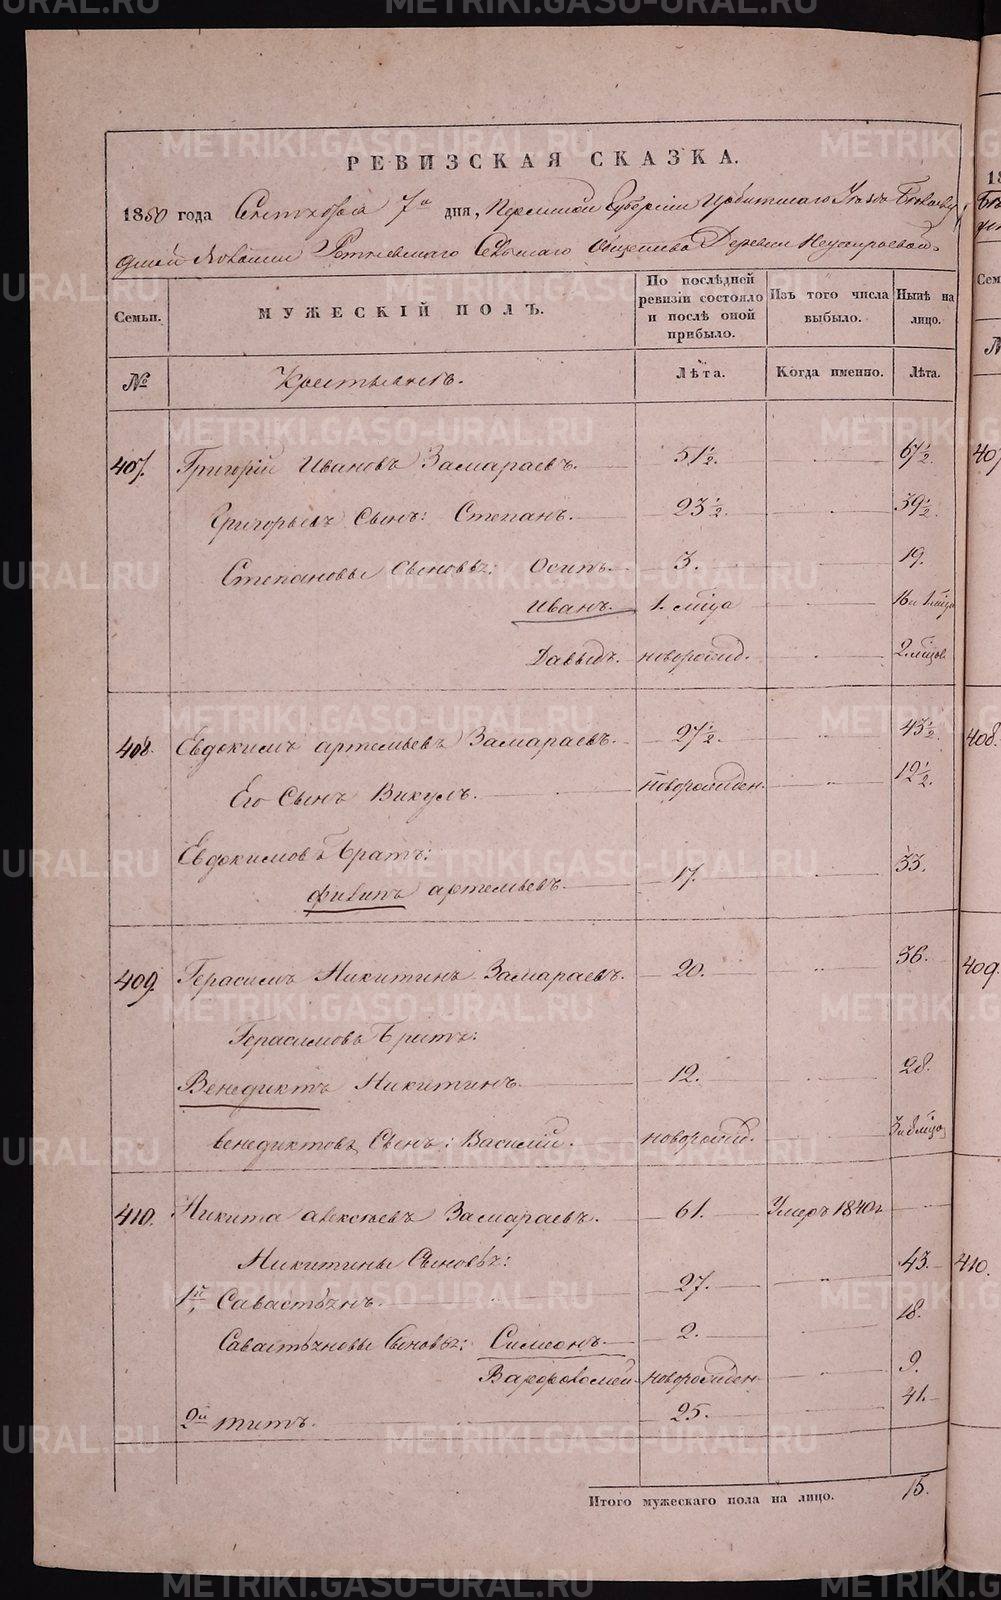 РЕВИЗСКАЯ СКАЗКА.
1850 года Сентября 7го дня, Пермской Губернии Ирбитского Уезда
Сельскаго Общества Деревни
Семьи. МУЖЕСКІЙ ПОЛЪ. По послѣдней ревизіи состояло и послѣ оной прибыло. Изъ того числа выбыло. Нынѣ на лицо.
№ Крестьянъ. Лѣта. Когда именно. Лѣта.
407. Григорій Ивановъ Замараевъ. 51½. 67½.
Григорьевъ Сынъ: Степанъ. 23½. 39½.
Степановы Сыновья: Осипъ. 3. 19.
Иванъ. 1. мѣца 16 и 1 мѣца
Давыдъ. новорожд. 2 мѣцов
408. Евдокимъ артемьевъ Замараевъ. 27½. 43½.
Его Сынъ Викулъ. Новорожден. 12½.
Евдокимовъ Братъ:
филипъ артемьевъ. 17. 33.
409. Герасимъ Никитинъ Замараевъ. 20. 36.
Герасимовъ Братъ:
Венедиктъ Никитинъ. 12. 28.
Венедиктовъ Сынъ: Василий. новорожд.
410. Никита алексѣевъ Замараевъ. 61. Умеръ 1840 г.
Никитины Сыновья:
1й Савастьянъ. 27. 43.
Савастьяновы Сыновья: Симеонъ. 2. 18.
Варфоломей новорожден 9.
2й титъ. 25. 41.
Итого мужескаго пола на лицо. 15.
METRIKI.GASO-URAL.RU